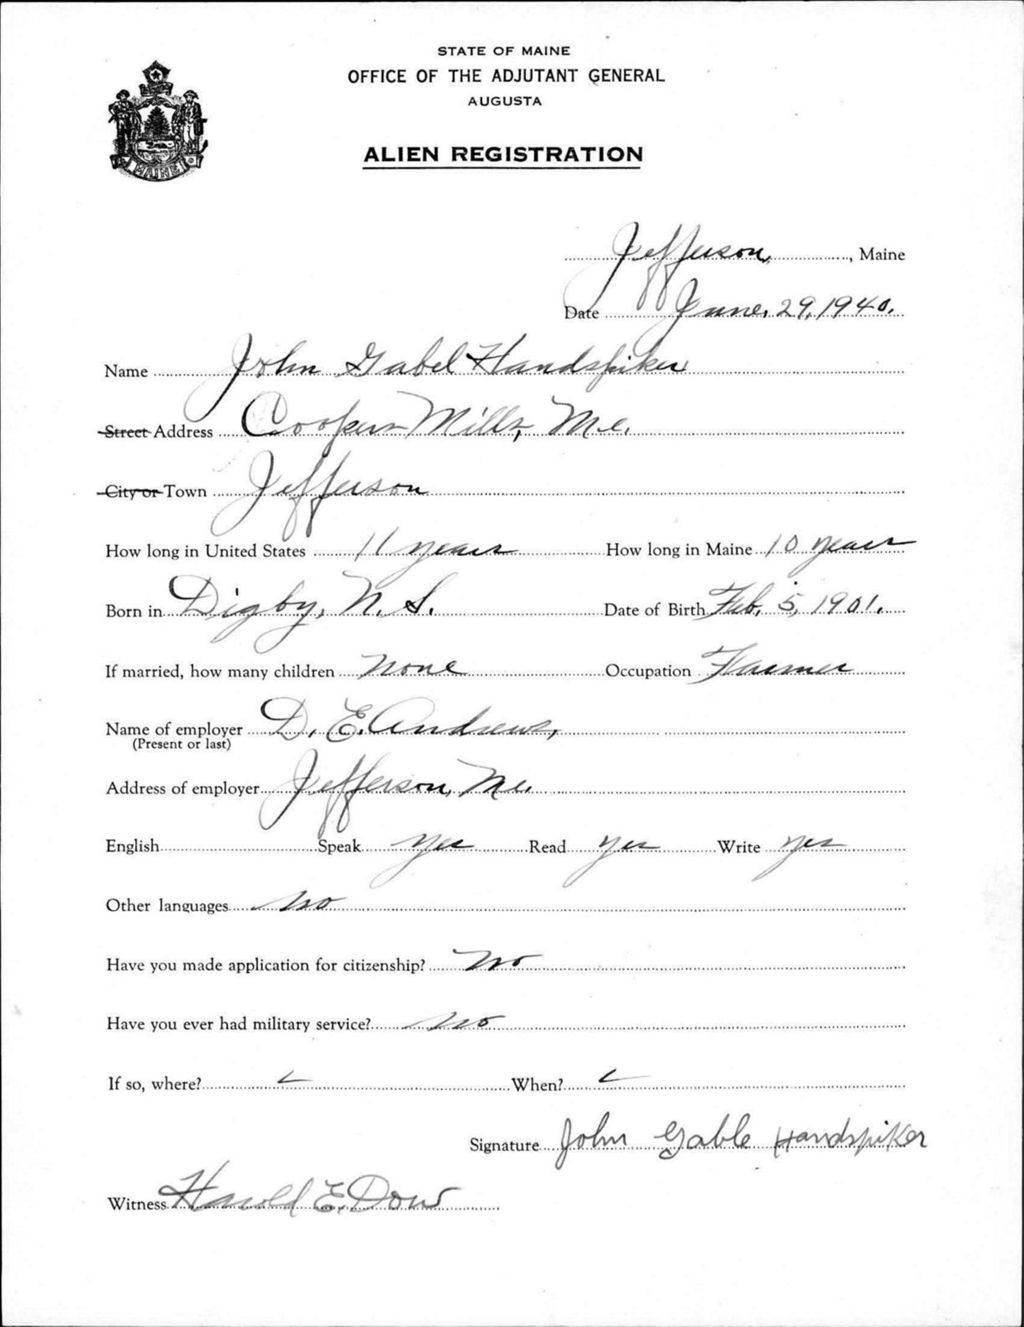 STATE OF MAINE
OFFICE OF THE ADJUTANT GENERAL
AUGUSTA
ALIEN REGISTRATION
MAINE
Jefferson, Maine
Date June, 29, 1940.
Name John Gabel Handspiker
Street Address Coopers Mills, Me.
City or Town Jefferson
How long in United States 11 years How long in Maine 10 years
Born in Digby, N. S. Date of Birth Feb, 5, 1901.
If married, how many children None Occupation Farmer
Name of employer D. E. Andrews,
(Present or last)
Address of employer Jefferson, Me.
English Speak Yes Read Yes Write Yes
Other languages No
Have you made application for citizenship? No
Have you ever had military service? No
If so, where? When?
Signature John Gable Handspiker
Witness Harold E. Dow